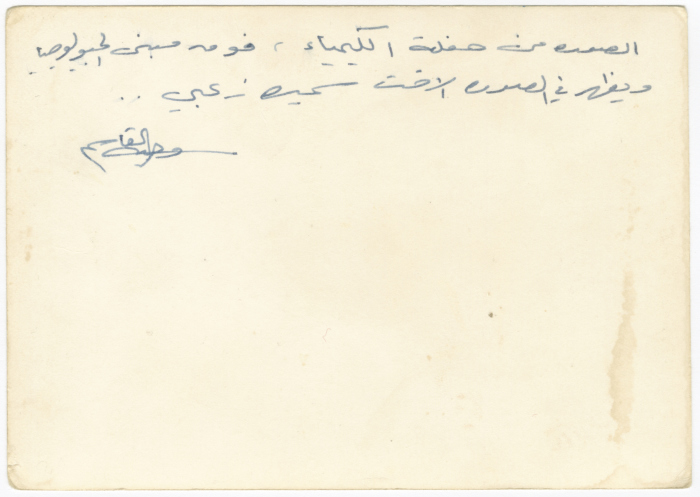 الصوره من حفلة الكيمياء ، فوق مبنى الجيولوجيا
ويظهر في الصوره الاخت سميره زعبي ..
القاسم